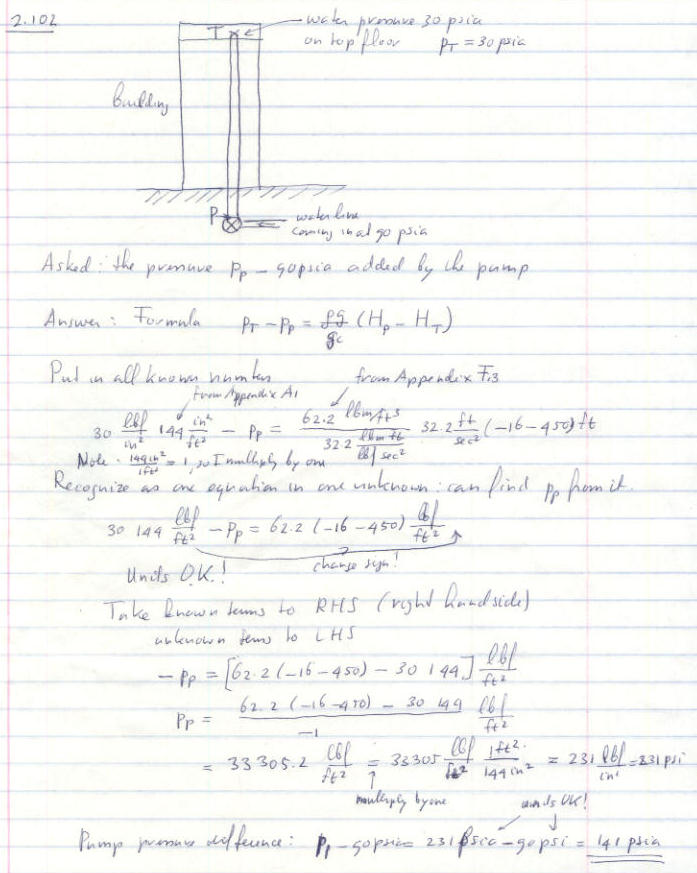 2.102
T
water pressure 30 psia
on top floor p_T = 30 psia
Building
P
water line
coming in at 90 psia
Asked: the pressure P_p - 90psia added by the pump
Answer: Formula P_T - P_p = ρg/g_c (H_p - H_T)
Put in all known numbers
from Appendix A1
from Appendix F.3
30 lbf/in² 144 in²/ft² - P_p = 62.2 lbm/ft³ / 32.2 lbm ft/lbf sec² 32.2 ft/sec² (-16 - 450) ft
Note: 144in²/1ft² = 1, so I multiply by one
Recognize as one equation in one unknown: can find p_p from it.
30 144 lbf/ft² - P_p = 62.2 (-16 - 450) lbf/ft²
change sign!
Units OK!
Take known terms to RHS (right handside)
unknown terms to LHS
- P_p = [62.2 (-16 - 450) - 30 144] lbf/ft²
P_p = 62.2 (-16 - 450) - 30 144 / -1 lbf/ft²
= 33305.2 lbf/ft² = 33305 lbf/ft² 1ft²/144in² = 231 lbf/in² = 231 psi
multiply by one
units OK!
Pump pressure difference: P_p - 90psia = 231 psia - 90 psi = 141 psia